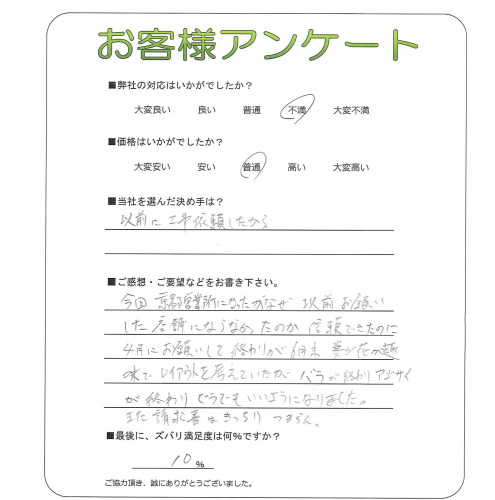 お客様アンケート
■弊社の対応はいかがでしたか？
大変良い 良い 普通 不満 大変不満
■価格はいかがでしたか？
大変安い 安い 普通 高い 大変高い
■当社を選んだ決め手は？
以前に工事依頼したから
■ご感想・ご要望などをお書き下さい。
今回 京都営業所になったがなぜ 以前お願い
した店舗にならなかったのか 信頼できたのに
4月にお願いして終わりが6月末 妻が花が趣
味で レイアウトを考えていたが バラが終わりアジサイ
が終わり どうでもいいようになりました。
また請求書はきっちり
■最後に、ズバリ満足度は何%ですか？
10 %
ご協力頂き、誠にありがとうございました。